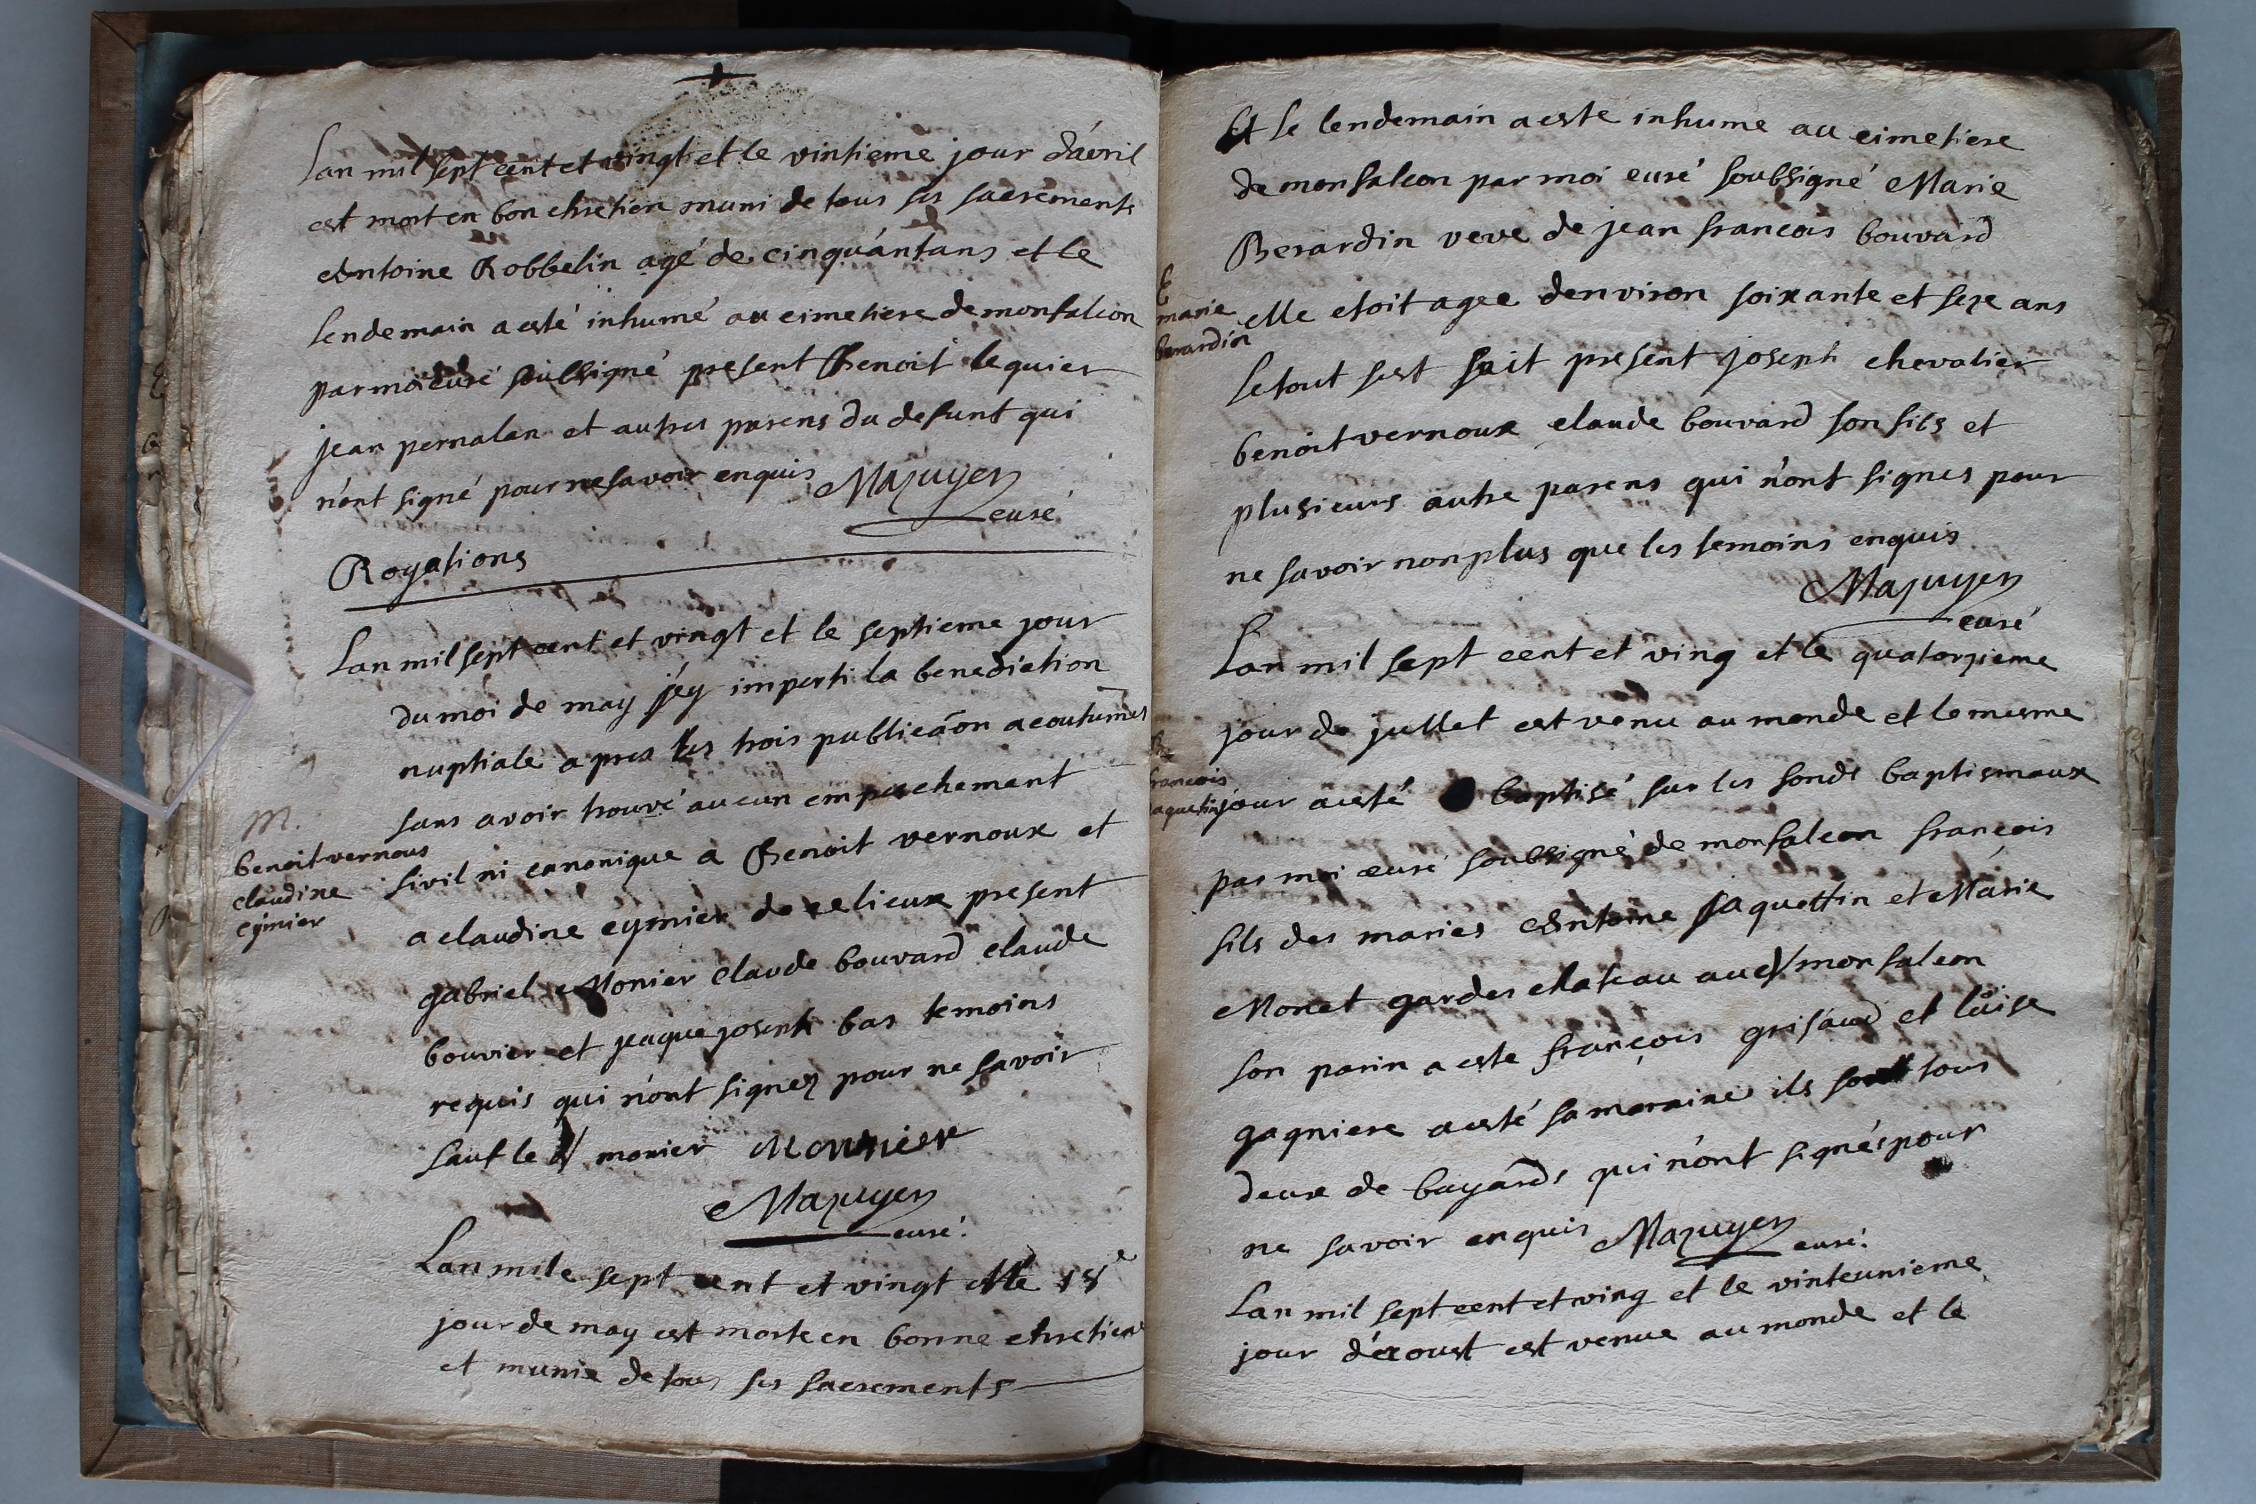 Lan mil sept cent et vingt et le vintieme jour d'avril
est mort en bon chretien muni de tous ses sacrements
Antoine Robbelin agé de cinquantans et le
lendemain a esté inhumé au cimetiere de monfalcon
par moi curé soubsigné present Benoit lequier
jean pernalan et autres parens du defunt qui
n'ont signé pour ne savoir enquis Mazuyer
curé
Rogations
Lan mil sept cent et vingt et le septieme jour
du moi de may j'ey imparti la benediction
nuptiale apres les trois publicaon acoutumes
sans avoir trouvé aucun empechement
M.
benoit vernous
claudine
eymier
sivil ni canonique a Benoit vernoux et
a claudine eymier de celieux present
gabriel Monier Claude bouvard claude
bouvier et jeaque joseph bas temoins
requis qui n'ont signez pour ne savoir
sauf le d/ monier Monnier
Mazuyer
curé.
Lan mile sept cent et vingt et le 18e
jour de may est morte en bonne chretiene
et munie de tous ses sacrements
Et le lendemain a este inhume au cimetiere
de monfalcon par moi curé soubsigné Marie
Berardin veve de jean francois bouvard
E
marie
berardin
elle etoit agee denviron soixante et seze ans
le tout sest fait present joseph chevalier
benoit vernoux claude bouvard son fils et
plusieurs autre parens qui n'ont signes pour
ne savoir non plus que les temoins enquis
Mazuyer
curé
Lan mil sept cent et ving et le quatorzieme
jour de jullet est venu au monde et le mesme
francois
jaquetin
jour a esté baptisé sur les fonds baptismaux
par moi curé soubsigné de monfalcon françois
fils des maries Antoine jaquettin et Marie
Moncet gardes chateau aud/ monfalcon
son parin a este françois grisaud et luise
gagniere a esté sa maraine ils sont tous
deux de bayards qui n'ont signés pour
ne savoir enquis Mazuyer
curé.
Lan mil sept cent et ving et le vinteunieme
jour d'aoust est venue au monde et le